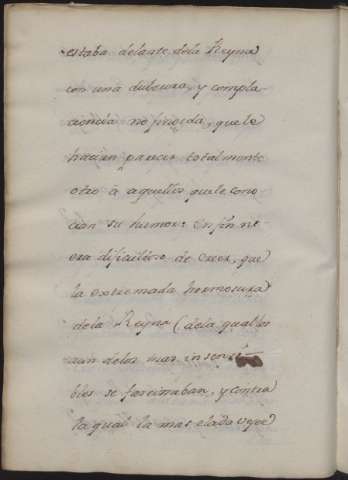 estaba delante dela Reyna
con una dulzura, y compla-
acencia no fingida, que le
hacian parecer totalmente
otro à aquellos que le cono-
cian su humor: en fin no
era dificultoso de creer, que
la extremada hermosura
dela Reyna (dela qual los
aun delos mas insensi-
bles se fascinaban, y contra
la qual la mas elada vejez